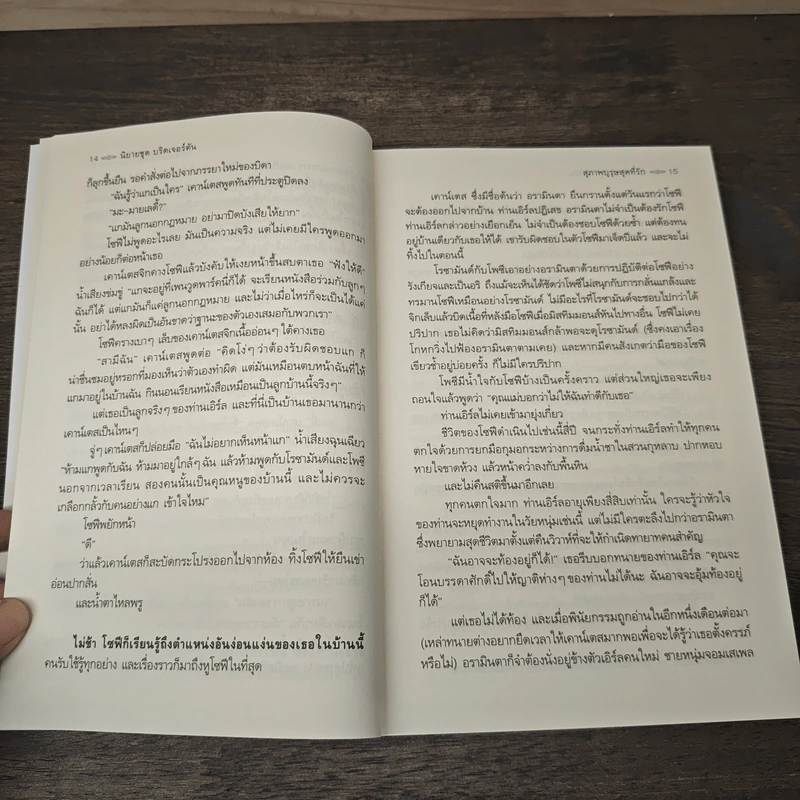 14 นิยายชุด บริดเจอร์ตัน
ก็ลุกขึ้นยืน รอคำสั่งต่อไปจากภรรยาใหม่ของบิดา
"ฉันรู้ว่าแกเป็นใคร" เคาน์เตสพูดทันทีที่ประตูปิดลง
"มะ-มายเลดี้?"
"แกมันลูกนอกกฎหมาย อย่ามาปิดบังเสียให้ยาก"
โซฟีไม่พูดอะไรเลย มันเป็นความจริง แต่ไม่เคยมีใครพูดออกมา
อย่างน้อยก็ต่อหน้าเธอ
เคาน์เตสจิกคางโซฟีแล้วบังคับให้เงยหน้าขึ้นสบตาเธอ "ฟังให้ดี"
น้ำเสียงข่มขู่ "แกจะอยู่ที่เพนวูดพาร์คนี่ก็ได้ จะเรียนหนังสือร่วมกับลูกๆ
ฉันก็ได้ แต่แกมันก็แค่ลูกนอกกฎหมาย และไม่ว่าเมื่อไหร่ก็จะเป็นได้แค่
นั้น อย่าได้หลงผิดเป็นอันขาดว่าฐานะของตัวเองเสมอกับพวกเรา"
โซฟีครางเบาๆ เล็บของเคาน์เตสจิกเนื้ออ่อนๆ ใต้คางเธอ
"สามีฉัน" เคาน์เตสพูดต่อ "คิดโง่ๆ ว่าต้องรับผิดชอบแก ก็
น่าชื่นชมอยู่หรอกที่มองเห็นว่าตัวเองทำผิด แต่มันเหมือนตบหน้าฉันที่ให้
แกมาอยู่ในบ้านฉัน กินนอนเรียนหนังสือเหมือนเป็นลูกบ้านนี้จริงๆ"
แต่เธอเป็นลูกจริงๆ ของท่านเอิร์ล และที่นี่เป็นบ้านเธอมานานกว่า
เคาน์เตสเป็นไหนๆ
จู่ๆ เคาน์เตสก็ปล่อยมือ "ฉันไม่อยากเห็นหน้าแก" น้ำเสียงฉุนเฉียว
"ห้ามแกพูดกับฉัน ห้ามมาอยู่ใกล้ๆ ฉัน แล้วห้ามพูดกับโรซามันด์และโพซี
นอกจากเวลาเรียน สองคนนั้นเป็นคุณหนูของบ้านนี้ และไม่ควรจะ
เกลือกกลั้วกับคนอย่างแก เข้าใจไหม"
โซฟีพยักหน้า
"ดี"
ว่าแล้วเคาน์เตสก็สะบัดกระโปรงออกไปจากห้อง ทิ้งโซฟีให้ยืนเข่า
อ่อนปากสั่น
และน้ำตาไหลพรู
ไม่ช้า โซฟีก็เรียนรู้ถึงตำแหน่งอันง่อนแง่นของเธอในบ้านนี้
คนรับใช้รู้ทุกอย่าง และเรื่องราวก็มาถึงหูโซฟีในที่สุด
สุภาพบุรุษสุดที่รัก 15
เคาน์เตส ซึ่งมีชื่อต้นว่า อรามินตา ยืนกรานตั้งแต่วันแรกว่าโซฟี
จะต้องออกไปจากบ้าน ท่านเอิร์ลปฏิเสธ อรามินตาไม่จำเป็นต้องรักโซฟี
ท่านเอิร์ลกล่าวอย่างเยือกเย็น ไม่จำเป็นต้องชอบโซฟีด้วยซ้ำ แต่ต้องทน
อยู่บ้านเดียวกับเธอให้ได้ เขารับผิดชอบในตัวโซฟีมาเจ็ดปีแล้ว และจะไม่
ทิ้งไปในตอนนี้
โรซามันด์กับโพซีเอาอย่างอรามินตาด้วยการปฏิบัติต่อโซฟีอย่าง
รังเกียจและเป็นอริ ถึงแม้จะเห็นได้ชัดว่าโพซีไม่สนุกกับการกลั่นแกล้งและ
ทรมานโซฟีเหมือนอย่างโรซามันด์ ไม่มีอะไรที่โรซามันด์จะชอบไปกว่าได้
จิกเล็บแล้วบิดเนื้อที่หลังมือโซฟีเมื่อมิสทิมมอนส์หันไปทางอื่น โซฟีไม่เคย
ปริปาก เธอไม่คิดว่ามิสทิมมอนส์กล้าพอจะดุโรซามันด์ (ซึ่งคงเอาเรื่อง
โกหกวิ่งไปฟ้องอรามินตาตามเคย) และหากมีคนสังเกตว่ามือของโซฟี
เขียวช้ำอยู่บ่อยครั้ง ก็ไม่มีใครปริปาก
โพซีมีน้ำใจกับโซฟีบ้างเป็นครั้งคราว แต่ส่วนใหญ่เธอจะเพียง
ถอนใจแล้วพูดว่า "คุณแม่บอกว่าไม่ให้ฉันทำดีกับเธอ"
ท่านเอิร์ลไม่เคยเข้ามายุ่งเกี่ยว
ชีวิตของโซฟีดำเนินไปเช่นนี้สี่ปี จนกระทั่งท่านเอิร์ลทำให้ทุกคน
ตกใจด้วยการยกมือกุมอกระหว่างการดื่มน้ำชาในสวนกุหลาบ ปากหอบ
หายใจขาดห้วง แล้วหน้าคว่ำลงกับพื้นหิน
และไม่คืนสติขึ้นมาอีกเลย
ทุกคนตกใจมาก ท่านเอิร์ลอายุเพียงสี่สิบเท่านั้น ใครจะรู้ว่าหัวใจ
ของท่านจะหยุดทำงานในวัยหนุ่มเช่นนี้ แต่ไม่มีใครตะลึงไปกว่าอรามินตา
ซึ่งพยายามสุดชีวิตมาตั้งแต่คืนวิวาห์ที่จะให้กำเนิดทายาทคนสำคัญ
"ฉันอาจจะท้องอยู่ก็ได้!" เธอรีบบอกทนายของท่านเอิร์ล "คุณจะ
โอนบรรดาศักดิ์ไปให้ญาติห่างๆ ของท่านไม่ได้นะ ฉันอาจจะอุ้มท้องอยู่
ก็ได้"
แต่เธอไม่ได้ท้อง และเมื่อพินัยกรรมถูกอ่านในอีกหนึ่งเดือนต่อมา
(เหล่าทนายต่างอยากยืดเวลาให้เคาน์เตสมากพอเพื่อจะได้รู้ว่าเธอตั้งครรภ์
หรือไม่) อรามินตาก็จำต้องนั่งอยู่ข้างตัวเอิร์ลคนใหม่ ชายหนุ่มจอมเสเพล